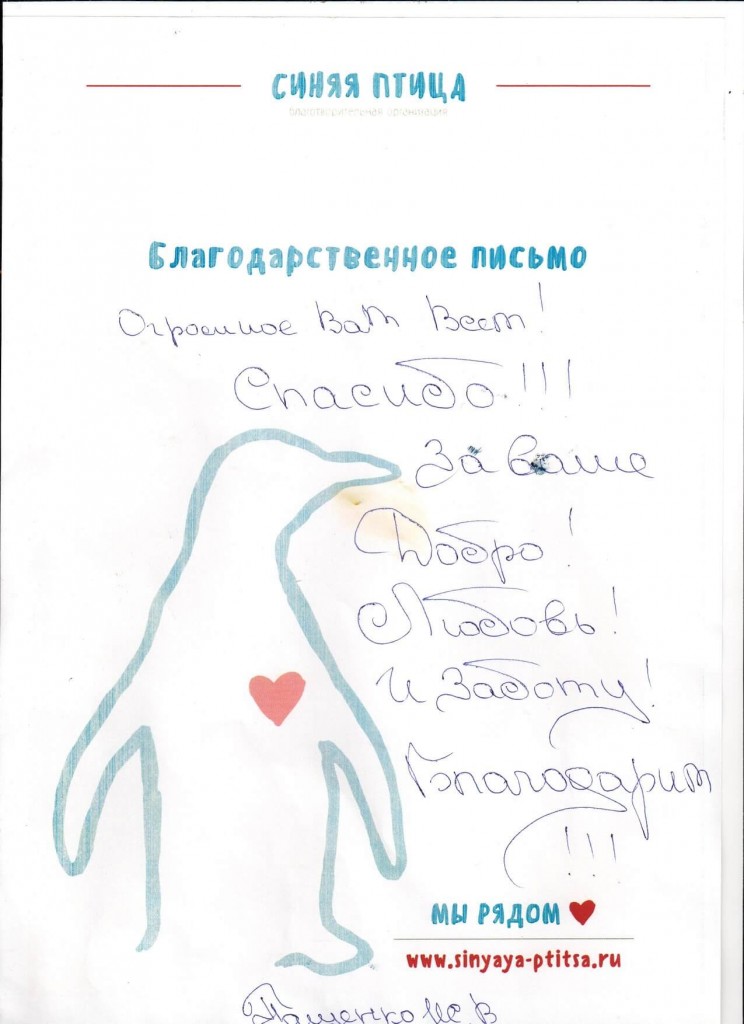 СИНЯЯ ПТИЦА
благотворительная организация
Благодарственное письмо
Огромное Вам Всем!
Спасибо!!!
За ваше
Добро!
Любовь!
и Заботу!
Благодарим
!!!
МЫ РЯДОМ
www.sinyaya-ptitsa.ru